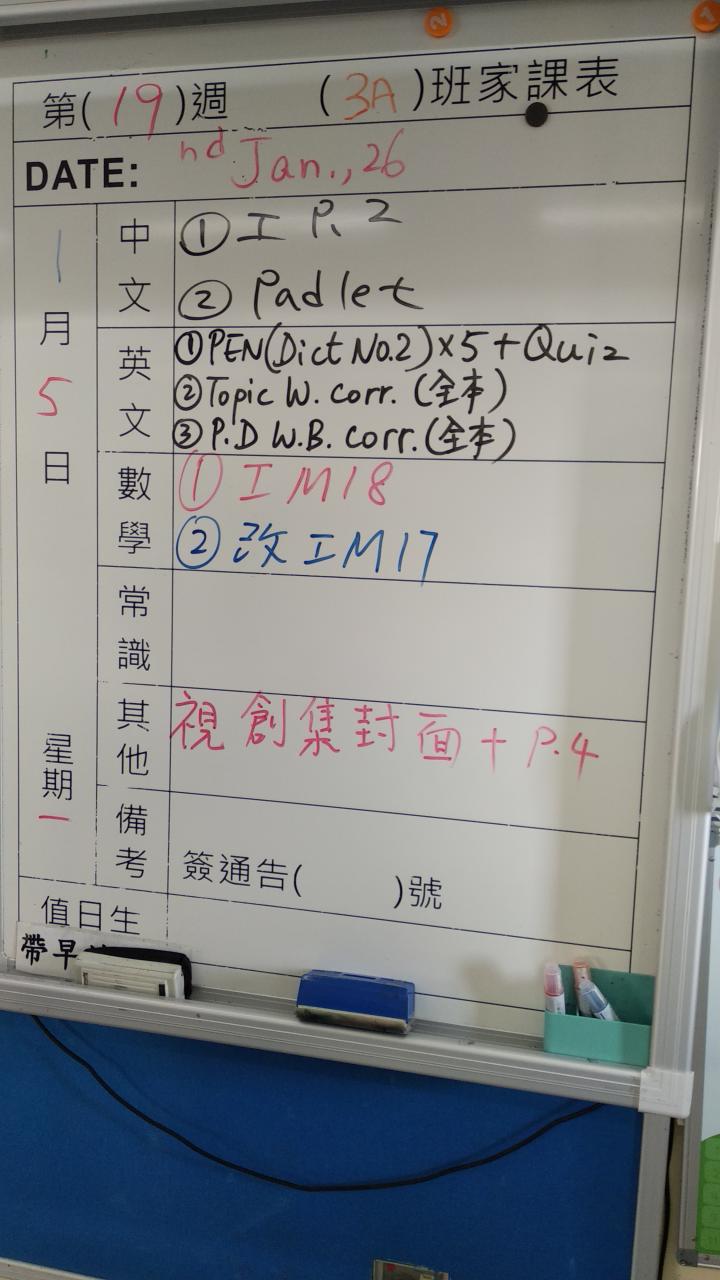 2
1
第(19)週 (3A)班家課表
DATE: nd Jan., 26
1月5日 星期一
中文 ①工 P. 2
② Padlet
英文 ①PEN(Dict No.2)×5+Quiz
②Topic W. corr. (全本)
③P.D W.B. corr. (全本)
數學 ①工 M18
②改工M17
常識
其他 視創集封面+P.4
備考 簽通告( )號
值日生
帶早